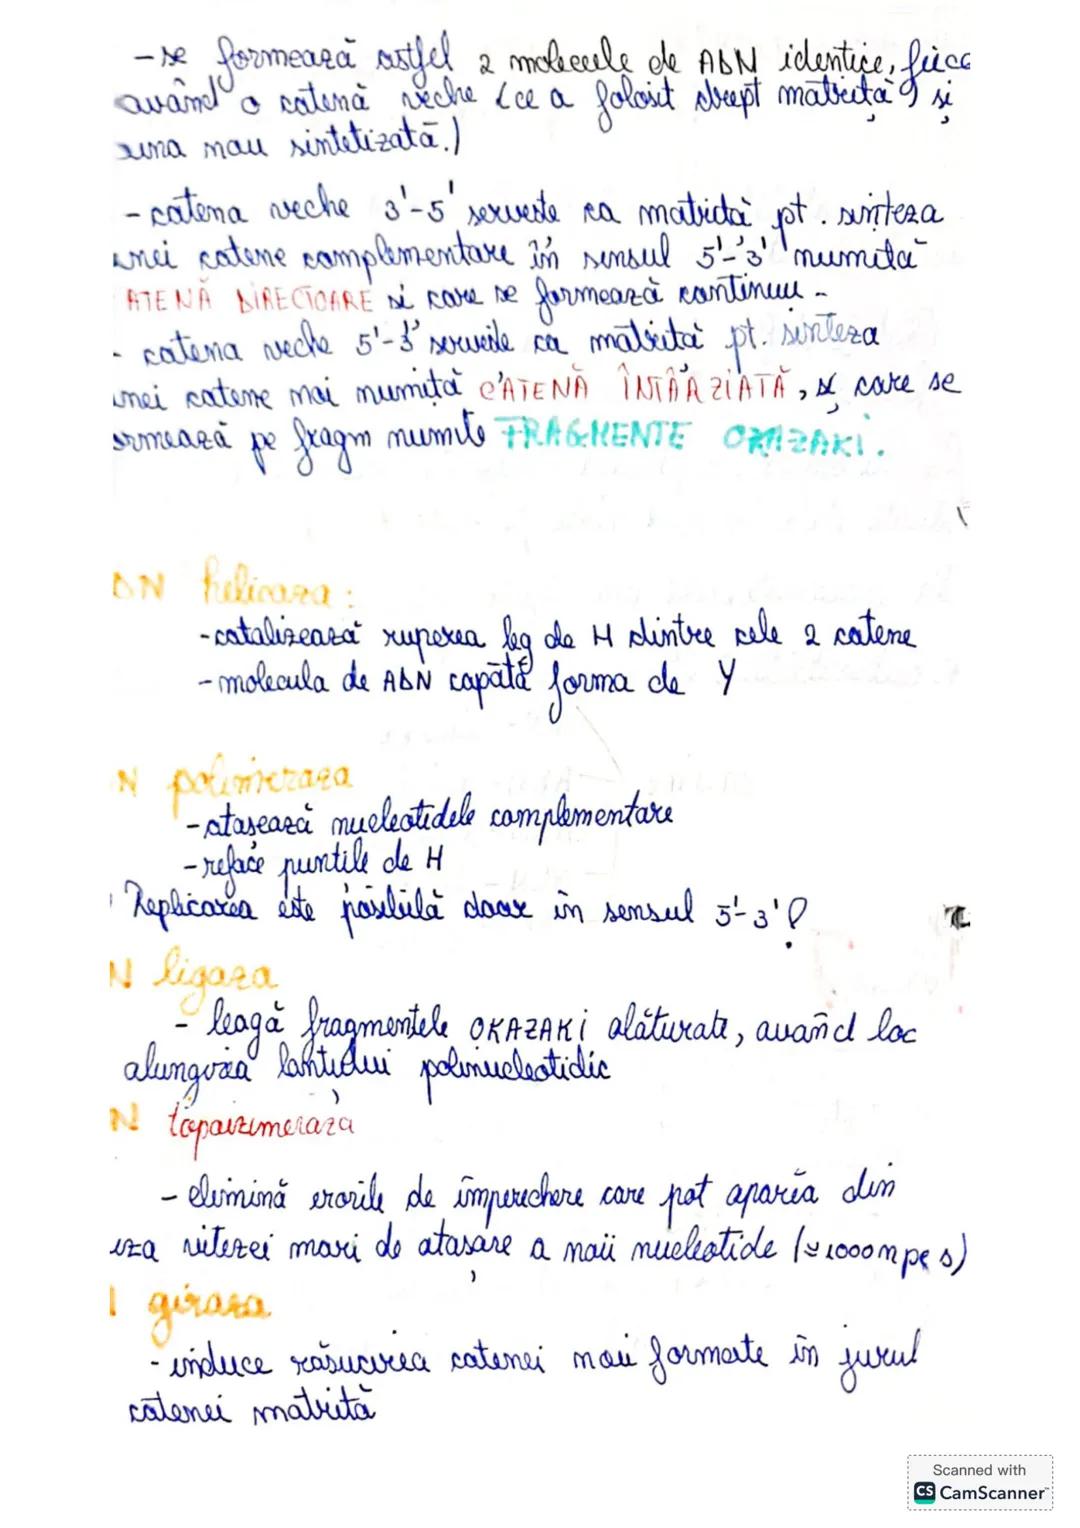 -se formează astfel 2 molecule de ADN identice, fiica
având o catenă veche (ce a folosit drept matriță) și
una nou sintetizată.)
-catena veche 3'-5' servește ca matriță pt. sinteza
unei catene complementare în sensul 5'-3' numită
ATENĂ DIRECTOARE si care se formează continuu-
- catena veche 5'-3' servește ca matriță pt. sinteza
unei catene noi numită CATENĂ ÎNTÂRZIATĂ, și care se
ormează pe fragm numite FRAGMENTE OKAZAKI.
DN helicaza:
-catalizează ruperea leg de H dintre cele 2 catene
-molecula de ADN capătă forma de Y
N polimeraza
-atasează nucleotidele complementare
-reface puntile de H
Replicarea este posibilă doar în sensul 5'-3'!
N ligaza
- leagă fragmentele OKAZAKI alăturate, având loc
alungirea lanțului polinucleotidic
N topoizmeraza
-elimină erorile de împerechere care pot apărea din
uza vitezei mari de atașare a noii nucleotide (≃1000n pe s)
I giraza
-induce răsucirea catenei nou formate în jurul
catenei matriță
Scanned with
CS CamScanner